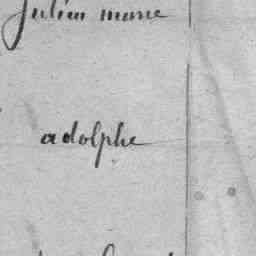 Julien marie
adolphe